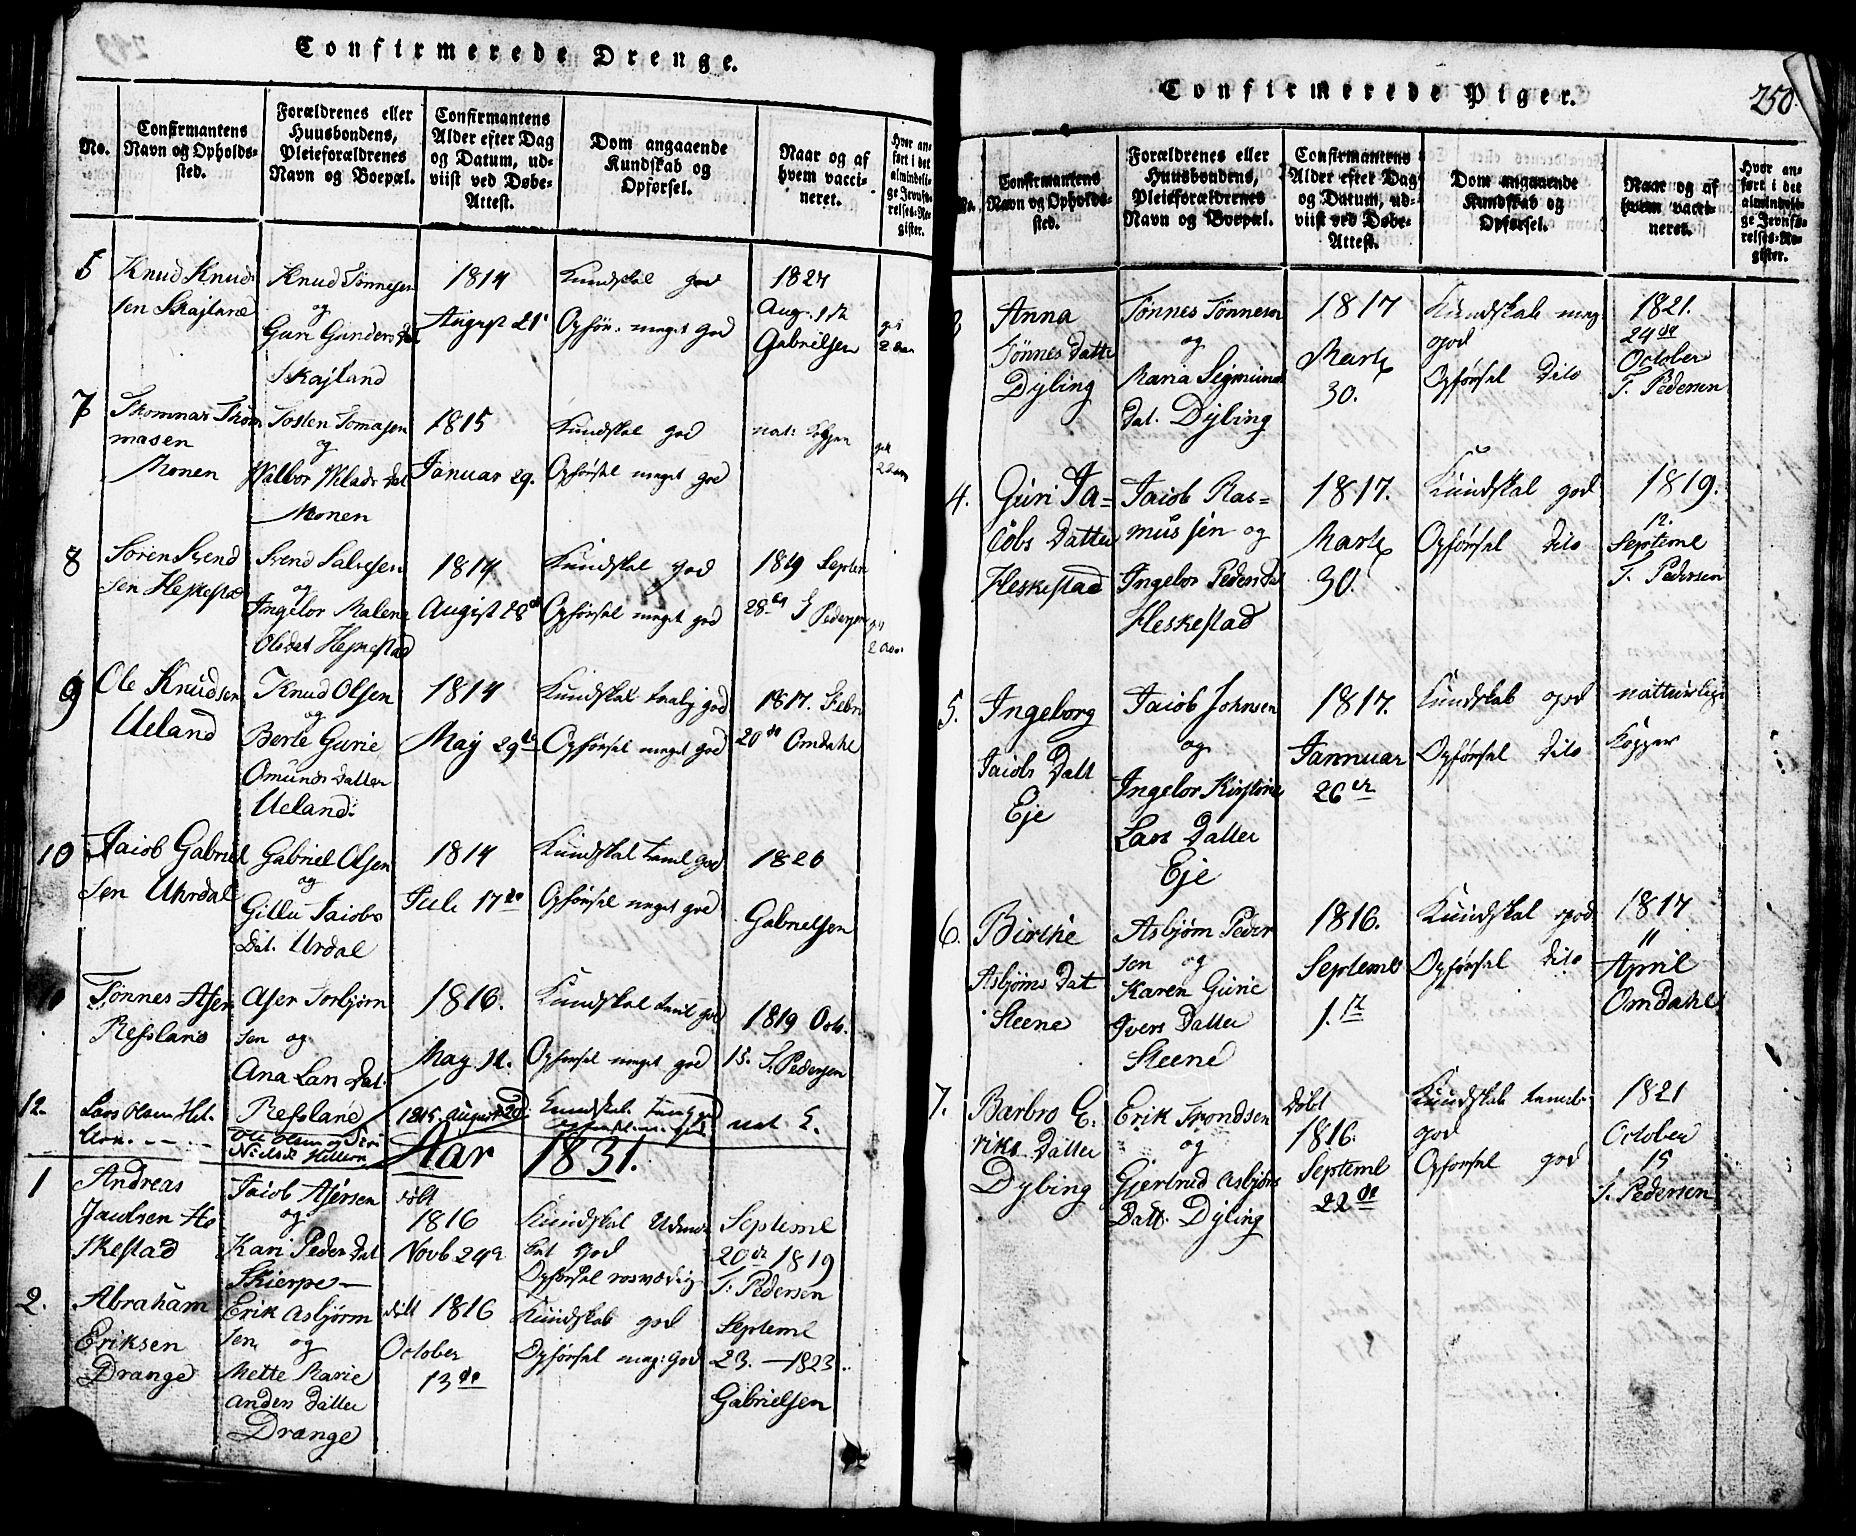 Confirmerede Drenge.
No.
Confirmantens
Navn og Opholds-
sted.
Forældrenes eller
Huusbondens,
Pleieforældrenes
Navn og Boepæl.
Confirmantens
Alder efter Dag
og Datum, ud-
viist ved Døbe-
Attest.
Dom angaaende
Kundskab og
Opførsel.
Naar og af
hvem vacci-
neret.
Hvor an-
ført i det
almindeli-
ge Jevnfø-
relses-Re-
gister.
Knud Knud
sen Skajland
Knud Tønnesen
og
Guri Gunders Dat
Skajland
1814
August 21
Kundskab god
Opfør: meget god
1824
Aug.
Gabrielsen
7
Thom
masen
Monen
Tosten Tomasen
og
Dat
Monen
1815
Januar 29.
Kundskab god
Opførsel meget god
nat:
8
Søren Svend
sen Heskestad
Svend Salvesen
og
Ingebor Malene
Olsdat Heskestad
1814
August 28de
Kundskab god
Opførsel meget god
1819 Septem
28de
Pedersen
9
Ole Knudsen
Ueland
Knud Olsen
og
Berte Gurie
Omunds Datter
Ueland:
1814
May 29de
Kundskab taalig god
Opførsel meget god
1817. Febr
20de Omdahl
10
Jaiob Gabriel
sen Uhrdal
Gabriel Olsen
og
Jaiobs
Dat. Urdal
1814
Juli 17de
Kundskab taml god
Opførsel meget god
1826
Gabrielsen
Tønnes Aser
Refsland
Aser Torbjørn
sen og
Ana Lars Dat.
Refsland
1816.
May 11.
Kundskab taml god
Opførsel meget god
1819 Octo.
15. T. Pedersen
12.
Lars Olsen Hel
Ole Olsen og Siri
Niels D
1815 August 20.
Kundskab
nat.
Aar 1831.
1
Andreas
Jacobsen He
skestad
Jaiob Asersen
og
Kari Peder Dat
Skierpe
født
1816
Novb 24de
Kundskab Udmær
ket god
Opførsel rosværdig
Septeml
20de 1819
T. Pedersen
2.
Abraham
Eriksen
Drange
Erik Asbjørn
sen og
Mette Marie
Anders Datter
Drange
født 1816
October
13de
Kundskab god
Opførsel meg: god
Septeml
23. — 1823.
Gabrielsen
Confirmerede Piger.
250.
No.
Confirmantens
Navn og Opholds-
sted.
Forældrenes eller
Huusbondens,
Pleieforældrenes
Navn og Boepæl.
Confirmantens
Alder efter Dag
og Datum, ud-
viist ved Døbe-
Attest.
Dom angaaende
Kundskab og
Opførsel.
Naar og af
hvem vacci-
neret.
Hvor an-
ført i det
almindeli-
ge Jevnfø-
relses-Re-
gister.
Anna
Tønnes Datter
Dybing
Tønnes Tønnesen
og
Maria Sigmunds
Dat. Dybing
1817
Marts
30.
Kundskab meg
god
Opførsel dito
1821.
24de
October
T. Pedersen
4.
Guri Ja-
cobs Datter
Heskestad
Jaiob Ras-
mussen og
Ingebor Peders Dat
Heskestad
1817.
Marts
30.
Kundskab god
Opførsel dito
1819.
12.
Septeml
T. Pedersen
5.
Ingeborg
Jaiobs Datt
Eje
Jaiob Johnsen
og
Ingebor Kirstine
Lars Datter
Eje
1817.
Jannuar
26de
Kundskab god
Opførsel dito
natturlige
Kopper
6.
Birthe
Asbjørns Dat
Steene
Asbjørn Peder
sen og
Karen Gurie
Ivers Datter
Steene
1816.
Septembr
1.
Kundskab god
Opførsel dito
1817
11
April
Omdahl
7.
Barbro E.
riks Datter
Dybing
Erik Trondsen
og
Gjertrud Asbjørns
Datt. Dybing
Døbt
1816.
Septeml
22de
Kundskab temme
god
Opførsel god
1821
October
15
T. Pedersen